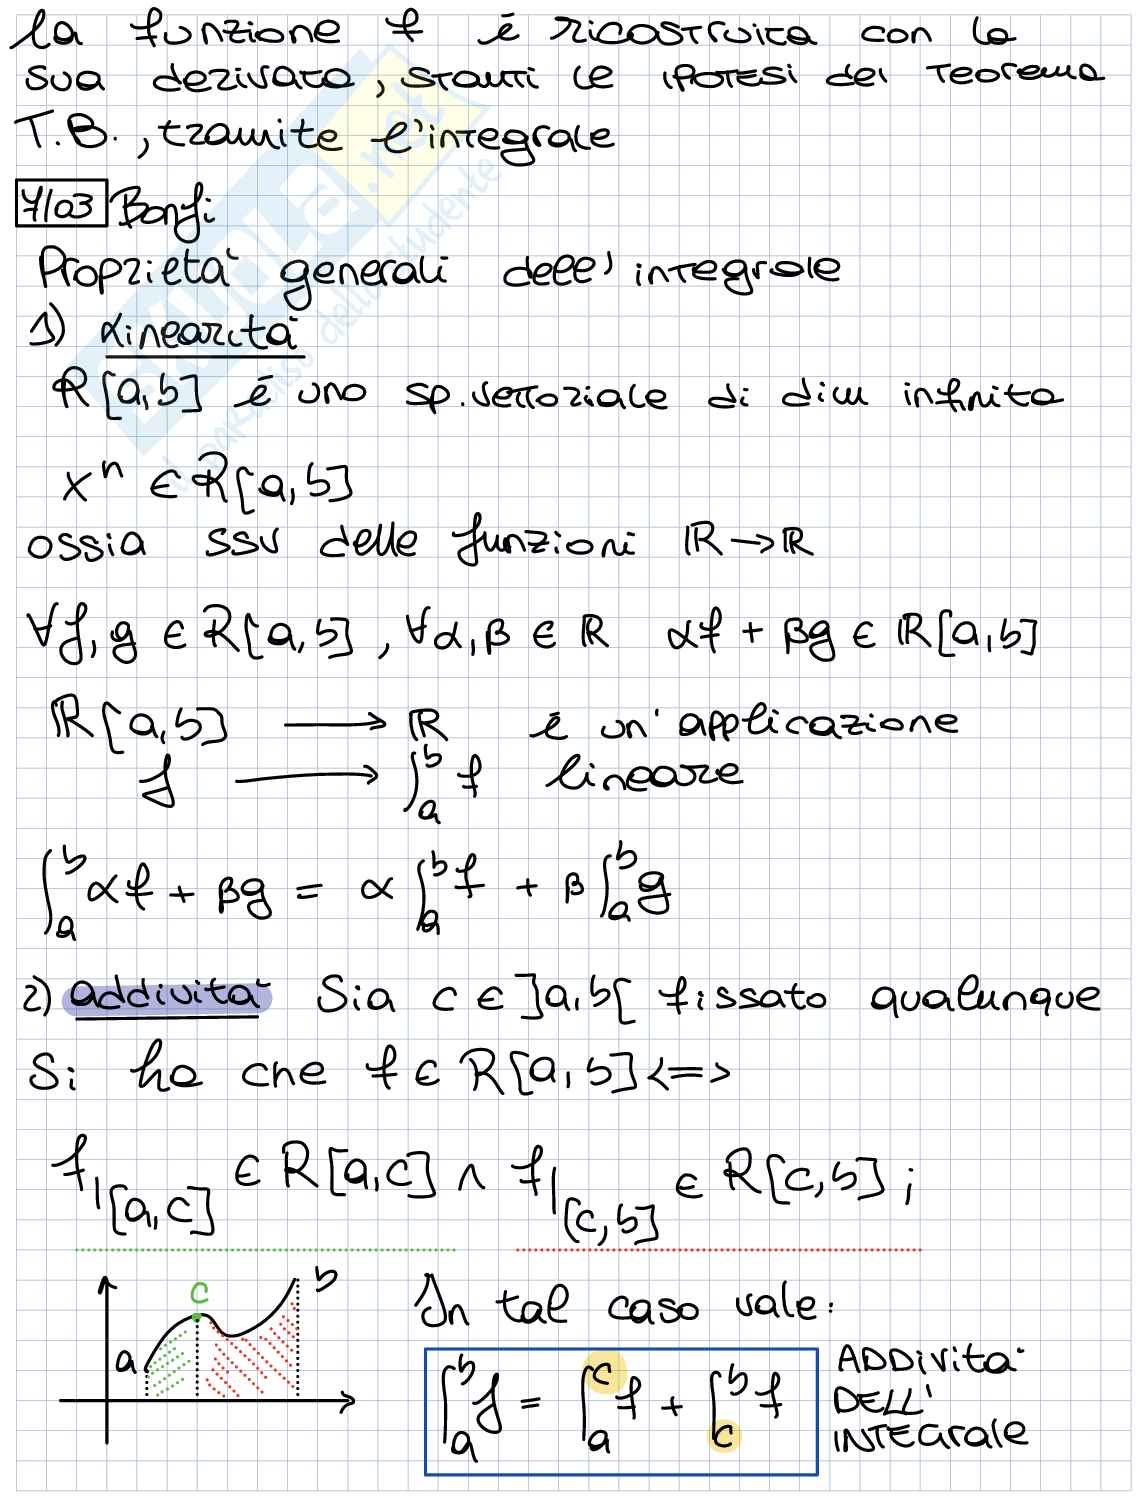 la funzione f è ricostruita con la
sua derivata, stanti le ipotesi del Teorema
T.B., tramite l'integrale
7/03 Bonfi
Proprietà generali dell'integrale
1) Linearità
R[a,b] è uno sp.vettoriale di dim infinita
xⁿ ∈ R[a,b]
ossia ssv delle funzioni ℝ→ℝ
∀f,g ∈ R[a,b], ∀α,β ∈ ℝ αf + βg ∈ ℝ[a,b]
ℝ[a,b] ⟶ ℝ è un'applicazione
f ⟶ ∫ₐᵇ f lineare
∫ₐᵇ αf + βg = α ∫ₐᵇ f + β ∫ₐᵇ g
2) addività Sia c ∈ ]a,b[ fissato qualunque
Si ha che f ∈ R[a,b] <=>
f|[a,c] ∈ R[a,c] ∧ f|[c,b] ∈ R[c,b] ;
a c b
In tal caso vale:
∫_a^b f = ∫_a^c f + ∫_c^b f
ADDIVITÀ
DELL'
INTEGRALE
SKUOLA.net
il paradiso dello studente